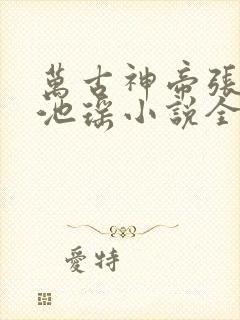 萬古神帝張
池瑤小說全
愛特